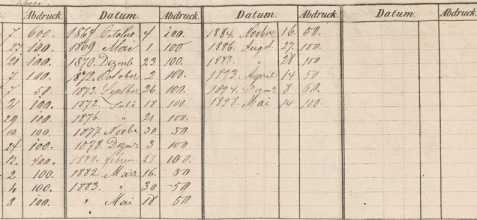 Abdruck. Datum. Abdruck. Datum. Abdruck. Datum. Abdruck.
7 600. 1867 October 4 200. 1884. Novbr. 16. 50.
100. 1869. Mai 1 100 1886. Augst 27. 100.
100. 1870. Dezmb 23 100. 28 100
7 100. 1872. October 2 100. 1893. April 14 50
7 50. 1873. Septbr 26 100. 1894. Dezmb 8 50.
21 100. 1875. Juli 18 100. 1898. Mai 14 100.
29 100. 1876. " 21 100.
100. 1877. Novbr 30 50
100. 1878. Dezmb 3 100
12. 100.
2 100. 1882. März 16. 50
4 100. 1883. " 30 50
8 100. " Mai 18 50